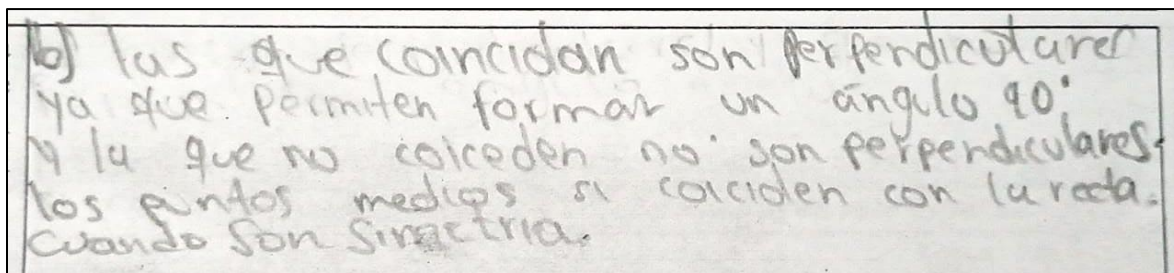 b) las que coincidan son perpendiculares
ya que permiten formar un ángulo 90°
y la que no coiceden no son perpendiculares
los puntos medios si coiciden con la recta.
cuando son simectria.